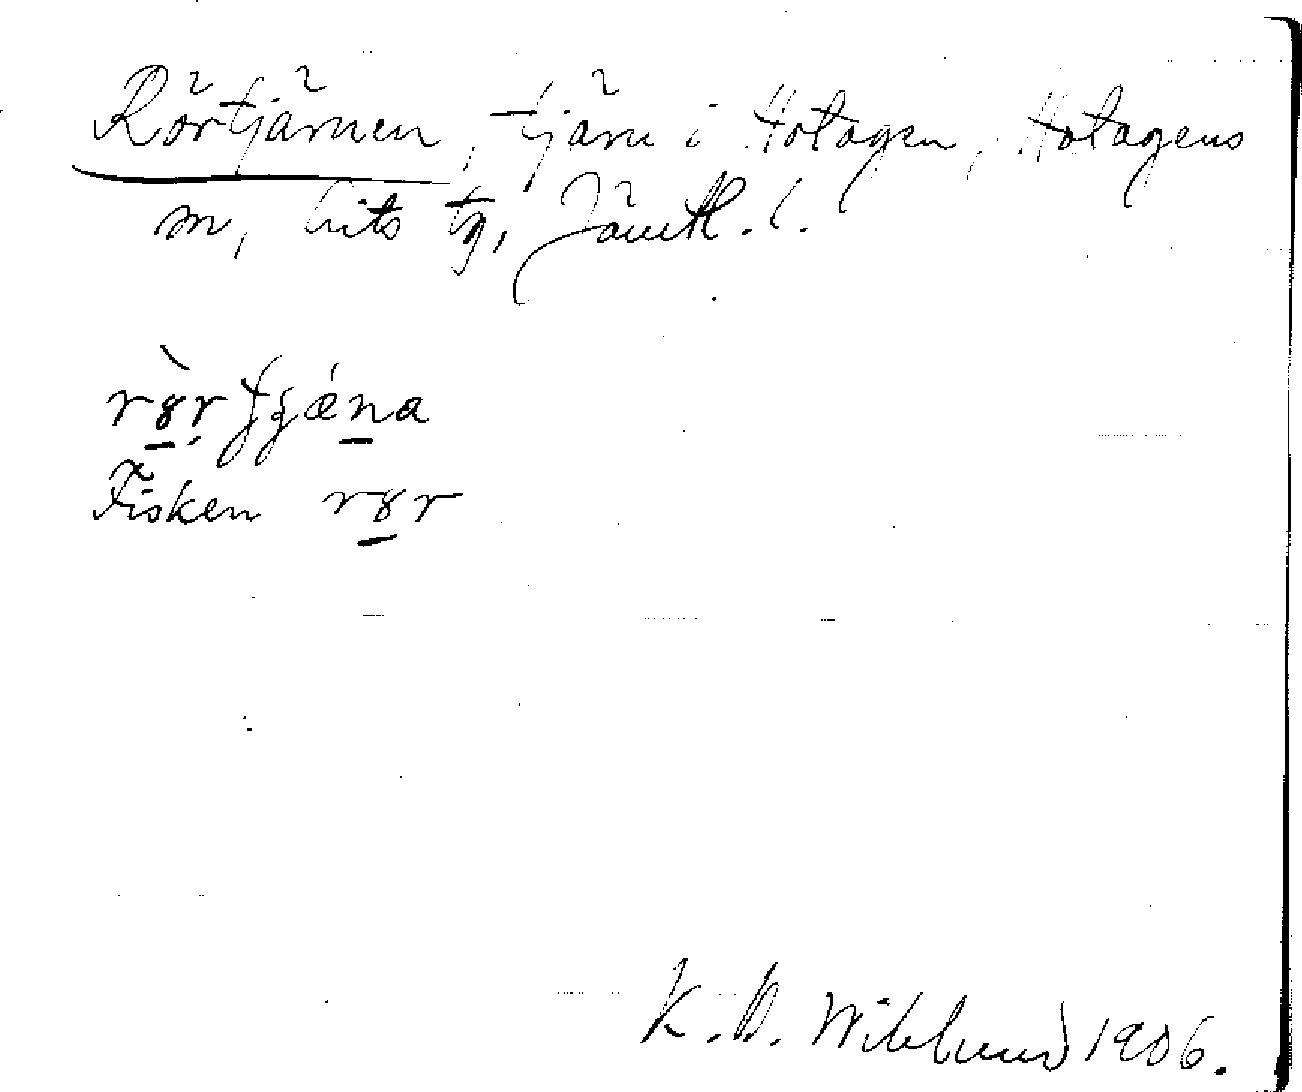 Rörtjärnen, tjärn i Hotagen, Hotagens
sn, Lits tg, Jämtl. l.
rɤ̀r tjǽna
Fisken rɤr
K. B. Wiklund 1906.